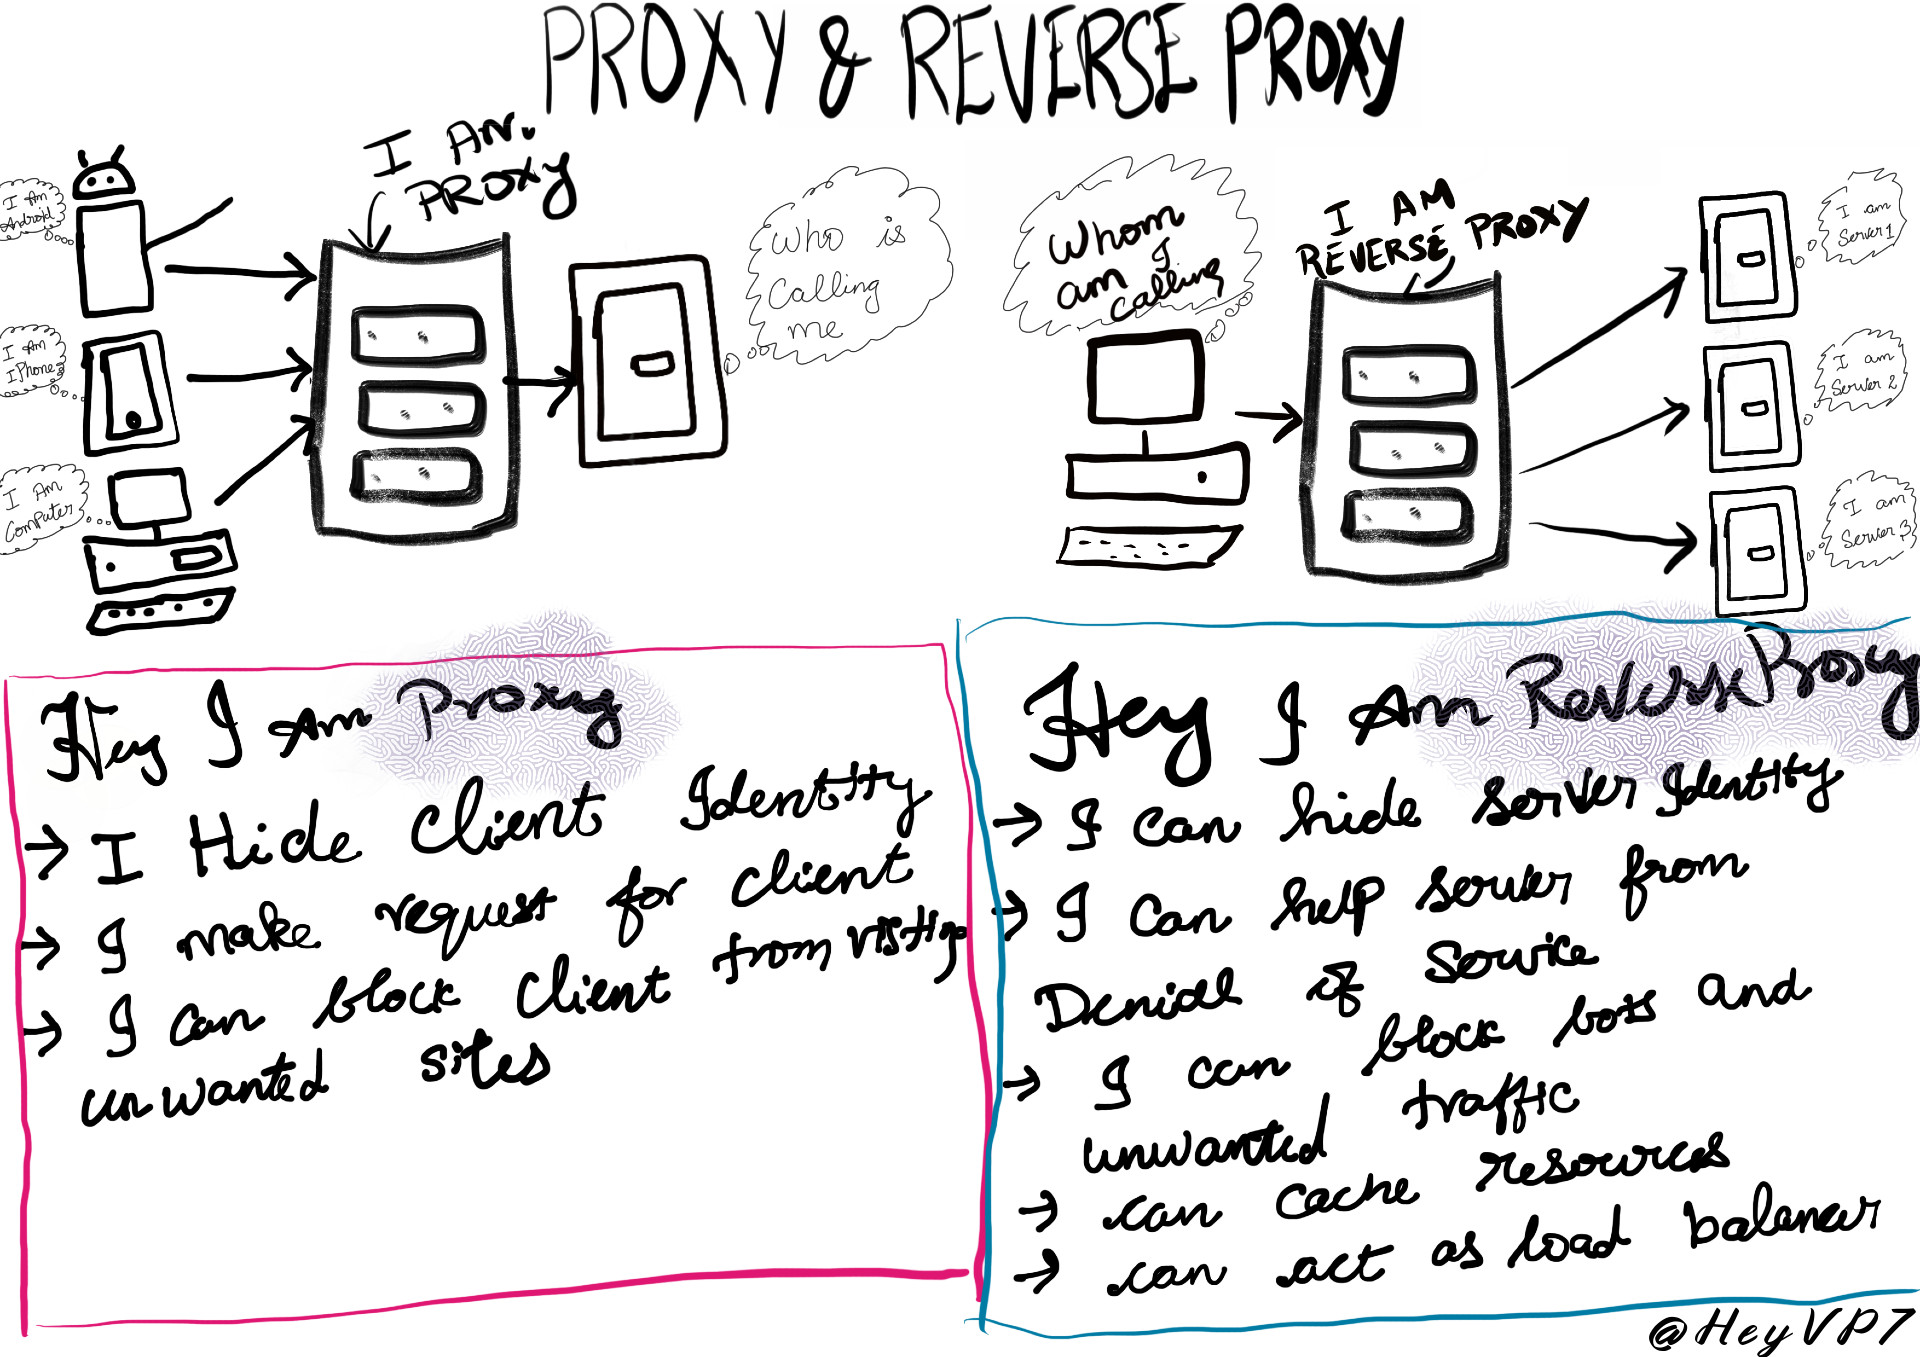 PROXY & REVERSE PROXY
I Am.
PROXY
I Am
Android
I Am
IPhone
I Am
Computer
Who is
Calling
me
Whom
am I
calling
I AM
REVERSE PROXY
I am
Server 1
I am
Server 2
I am
Server 3
Hey I Am Proxy
→ I Hide Client Identity
→ I make request for client
→ I can block client from visting
unwanted sites
Hey I Am Reverse Proxy
→ I can hide server Identity
→ I Can help server from
Denial of Service
→ I can block bots and
unwanted traffic
→ can cache resources
→ can act as load balancer
@HeyVP7